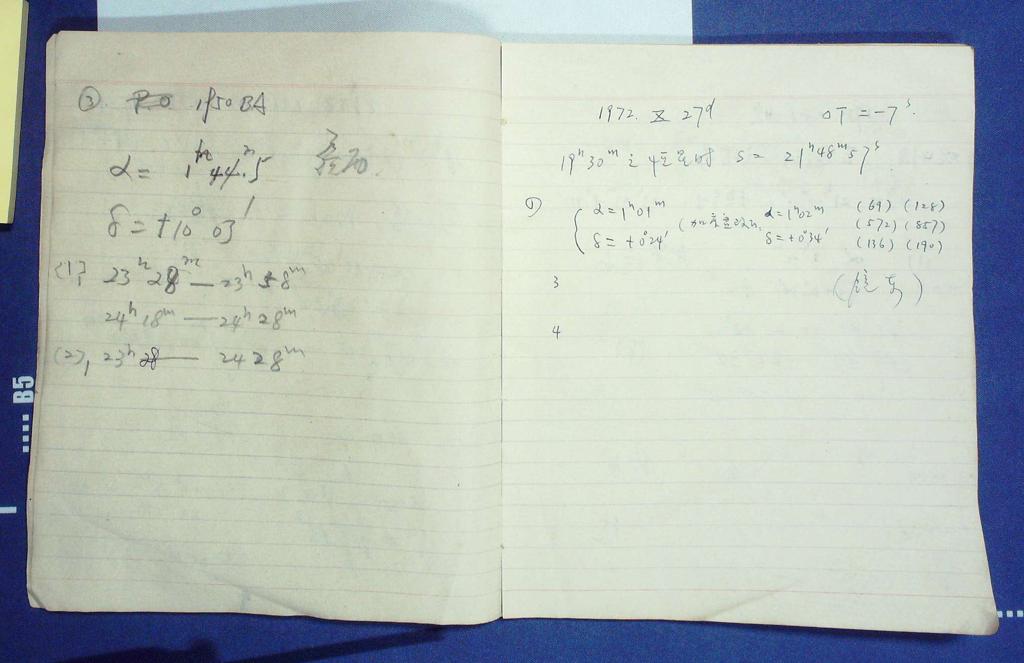 ③ P.O 1950 BA
α = 1ʰ 44ᵐ.5
δ = +10° 03′
(1), 23ʰ 28ᵐ — 23ʰ 58ᵐ
24ʰ 18ᵐ — 24ʰ 28ᵐ
(2), 23ʰ 28 — 24 28ᵐ
1972. X 27ᵈ ΔT = -7ˢ.
19ʰ30ᵐ 之 恒星时 S = 21ʰ48ᵐ57ˢ
① α = 1ʰ01ᵐ α = 1ʰ02ᵐ (69) (128)
δ = +0°24′ δ = +0°34′ (572) (857)
(136) (190)
3 (镜东)
4
B5